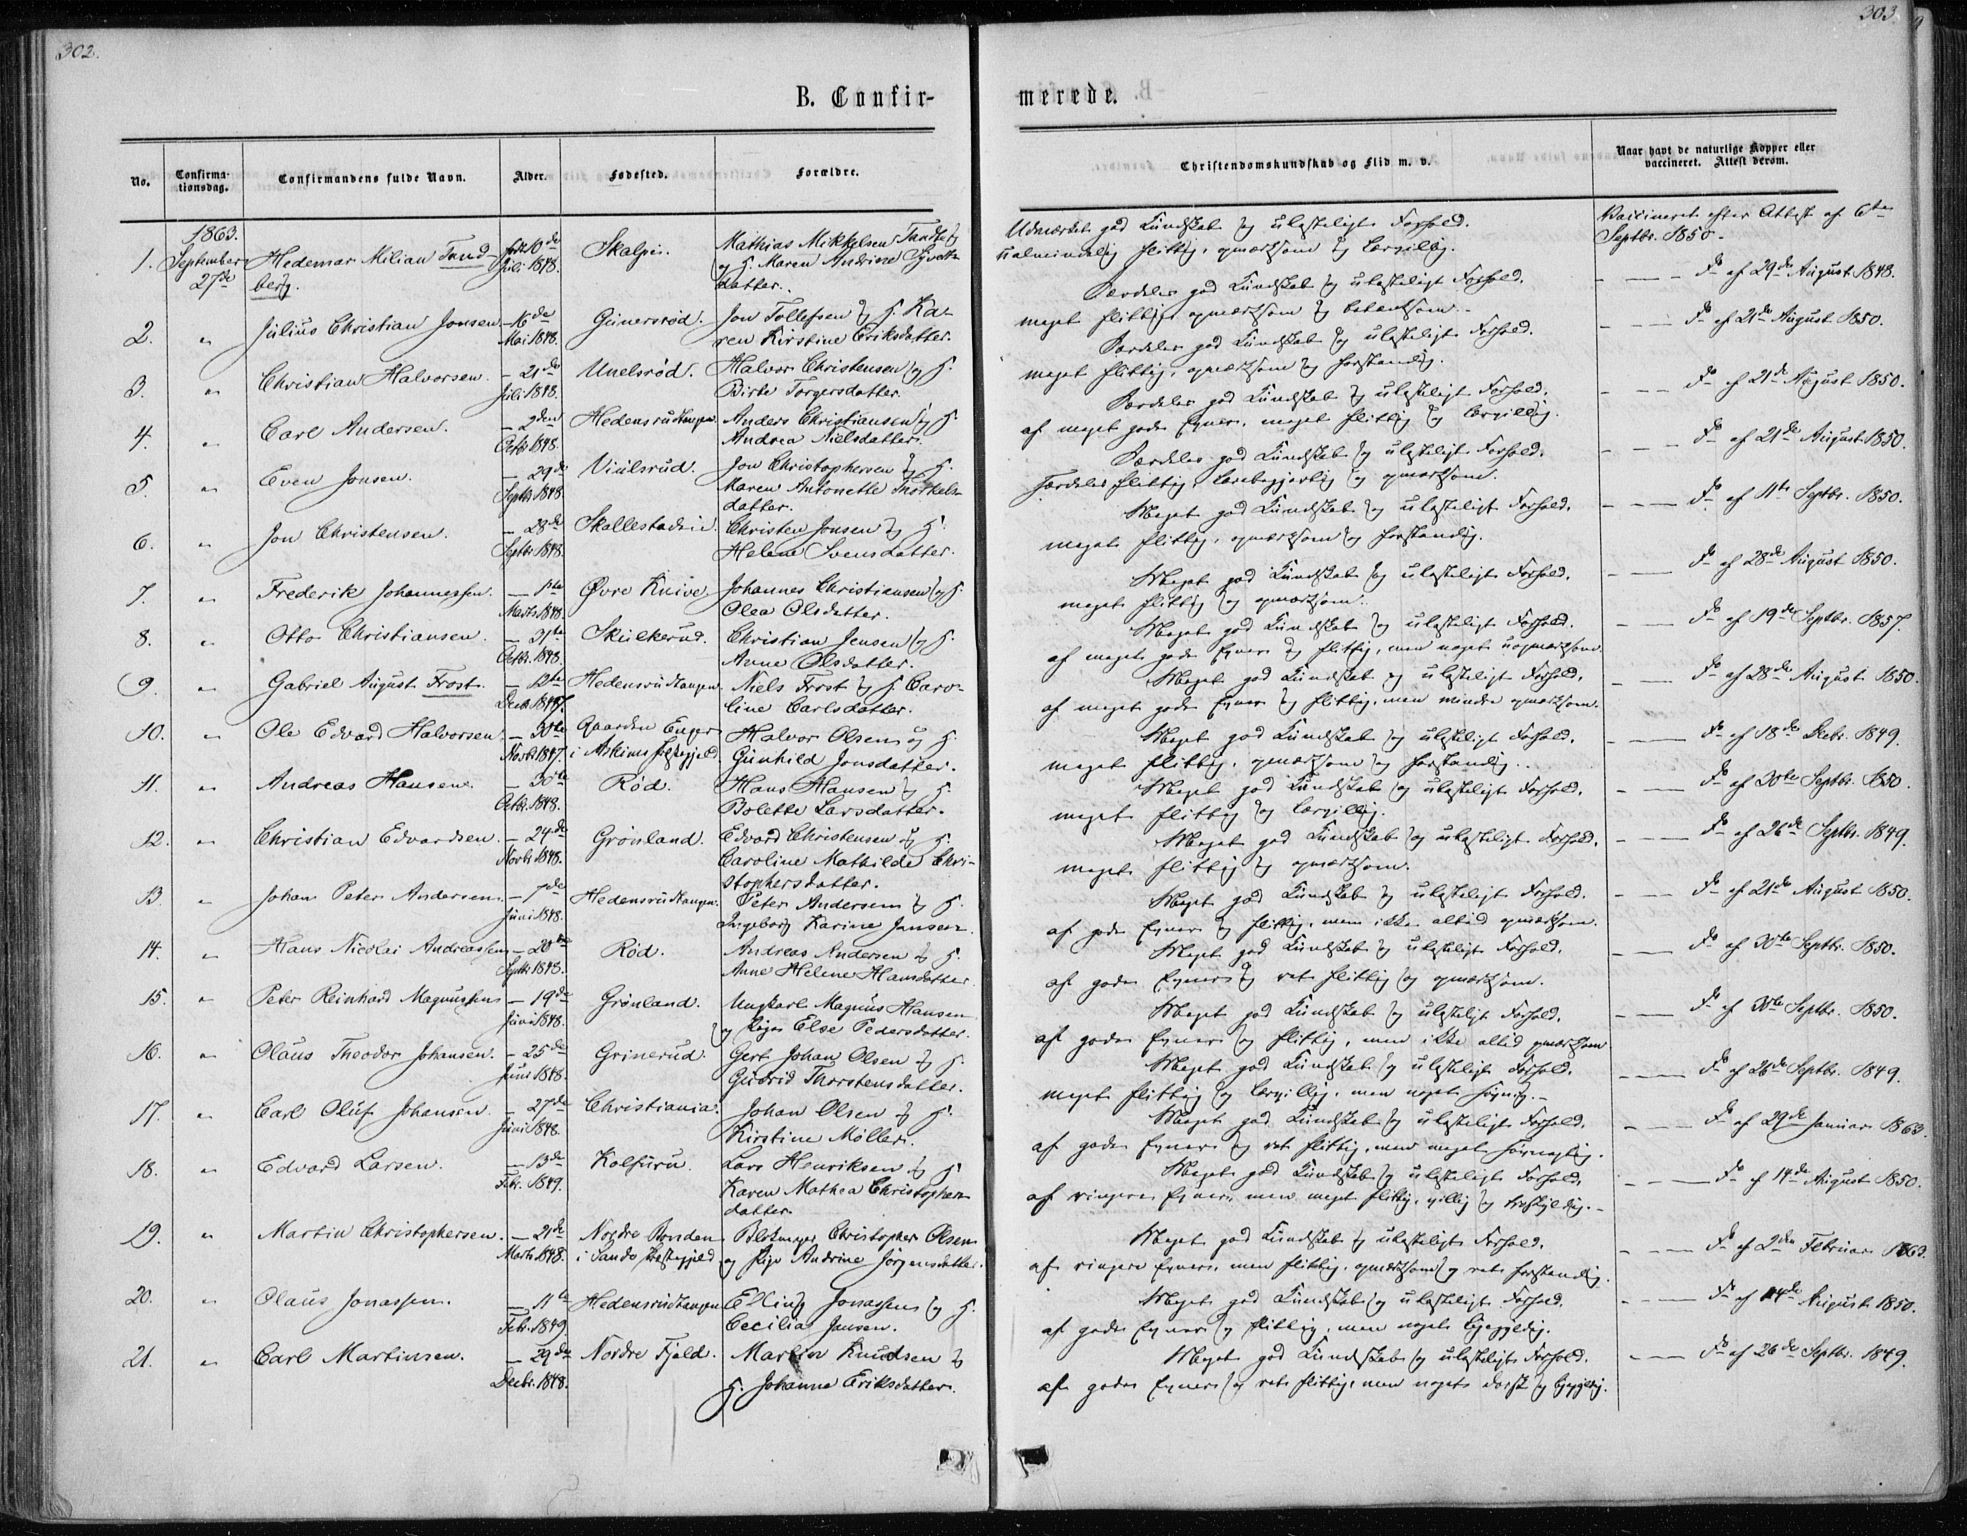 302.
303.
B. Confirmerede.
No.
Confirmationsdag.
Confirmandens fulde Navn.
Alder.
Fødested.
Forældre.
Christendomskundskab og Flid m. v.
Naar havt de naturlige Kopper eller vaccineret. Attest derom.
1863.
1. September 27de Hedemar Milian Tandberg. født 10de Juli 1848. Mathias Mikkelsen
og H. Maren Andrine
datter.
Udmærket god Kundskab og ulasteligt Forhold.
ualmindelig flittig, opmærksom og lærvillig.
Vaccineret efter Attest af 6te Septbr. 1850.
2. " Julius Christian Jonsen. — 16de Mai 1848. Gunersrød. Jon Tollefsen og H. Karen Kirstine Eriksdatter.
Særdeles god Kundskab og ulasteligt Forhold.
meget flittig, opmærksom og
— — Do af 29de August 1848.
3. " Christian Halvorsen. — 21de Juli 1848. Unelsrød. Halvor Christensen og H. Birte Torgersdatter.
Særdeles god Kundskab og ulasteligt Forhold.
meget flittig, opmærksom og forstandig.
— — Do af 21de August 1850.
4. " Carl Andersen. — 2den Octbr. 1848. Hedensrudtangen. Anders Christiansen og H. Andrea Nielsdatter.
Særdeles god Kundskab og ulasteligt Forhold.
af meget gode Evner, meget flittig og lærvillig.
— — Do af 21de August 1850.
5. " Even Jonsen. — 29de Septbr. 1848. Jon Christophersen og H. Maren Antonette Thorkelsdatter.
Særdeles god Kundskab og ulasteligt Forhold.
særdeles flittig, lærebegjærlig og opmærksom.
— — Do af 21de August 1850.
6. " Jon Christensen. — 28de Septbr. 1848. Christen Jonsen og H. Helene Svensdatter.
Meget god Kundskab og ulasteligt Forhold.
meget flittig, opmærksom og forstandig.
— — Do af 11te Septbr. 1850.
7. " Frederik Johannessen. — 1ste Marts 1848. Øvre Knive. Johannes Christiansen og H. Olea Olsdatter.
Meget god Kundskab og ulasteligt Forhold.
meget flittig og opmærksom.
— — Do af 28de August 1850.
8. " Otto Christiansen. — 31te Octbr. 1848. Skulkerud. Christian Jensen og H. Anne Olsdatter.
Meget god Kundskab og ulasteligt Forhold.
af meget gode Evner og flittig, men noget uopmærksom.
— — Do af 19de Septbr. 1857.
9. " Gabriel August Frost. — 12te Decbr. 1847. Hedensrudtangen. Niels Frost og H. Caroline Carlsdatter.
Meget god Kundskab og ulasteligt Forhold.
af meget gode Evner og flittig, men mindre opmærksom.
— — Do af 28de August 1850.
10. " Ole Edvard Halvorsen. — 30te Novbr. 1847. Gaarden Enger i Askims Præstegjeld. Halvor Olsen og H. Gunhild Jonsdatter.
Meget god Kundskab og ulasteligt Forhold.
meget flittig, opmærksom og forstandig.
— — Do af 18de Octbr. 1849.
11. " Andreas Hansen. — 30te Octbr. 1848. Rød. Hans Hansen og H. Bolette Larsdatter.
Meget god Kundskab og ulasteligt Forhold.
meget flittig og lærvillig.
— — Do af 30te Septbr. 1850.
12. " Christian Edvardsen. — 24de Novbr. 1848. Grønland. Edvard Christensen og H. Caroline Mathilde Christophersdatter.
Meget god Kundskab og ulasteligt Forhold.
meget flittig og opmærksom.
— — Do af 26de Septbr. 1849.
13. " Johan Peter Andersen. — 7de Juni 1848. Hedensrudtangen. Peter Andersen og H. Ingeborg Karine Jansen.
Meget god Kundskab og ulasteligt Forhold.
af gode Evner og flittig, men ikke altid opmærksom.
— — Do af 21de August 1850.
14. " Hans Nicolai Andreassen — 20de Septbr. 1848. Rød. Andreas Andersen og H. Anne Helene Hansdatter
Meget god Kundskab og ulasteligt Forhold.
af gode Evner og ret flittig og opmærksom.
— — Do af 30te Septbr. 1850.
15. " Peter Reinhard Magnussen — 19de Juni 1848. Grønland. Ungkarl Magnus Hansen og Pige Else Pedersdatter.
Meget god Kundskab og ulasteligt Forhold.
af gode Evner og flittig, men ikke altid opmærksom
— — Do af 30te Septbr. 1850.
16. " Olaus Theodor Johansen. — 25de Juni 1848. Grinerud. Gert Johan Olsen og H. Gudrid Thorstensdatter.
Meget god Kundskab og ulasteligt Forhold.
meget flittig og lærvillig, men noget
— — Do af 26de Septbr. 1849.
17. " Carl Oluf Johansen. — 27de Juni 1848. Christiania. Johan Olsen og H. Kirstine Møller.
Meget god Kundskab og ulasteligt Forhold.
af gode Evner og ret flittig, men meget
— — Do af 29de Januar 1863.
18. " Edvard Larsen. — 13de Febr. 1849. Kolfuru. Lars Henriksen og H. Karen Mathea Christophersdatter.
Meget god Kundskab og ulasteligt Forhold.
af ringere Evner, men meget flittig, villig og
— — Do af 14de August 1850.
19. " Martin Christophersen. — 21de Marts 1848. Nordre i Sande Præstegjeld. Christopher Olsen og Pige Andrine Jørgensdatter.
Meget god Kundskab og ulasteligt Forhold.
af ringere Evner, men flittig, opmærksom og ret forstandig.
— — Do af 2den Februar 1863.
20. " Olaus Jonassen. — 11te Febr. 1849. Hedensrudtangen Elling Jonassen og H. Cecilia Jansen.
Meget god Kundskab og ulasteligt Forhold.
af gode Evner og flittig, men noget
— — Do af 14de August 1850.
21. " Carl Martinsen. — 29de Decbr. 1848. Nordre Fjeld. Martin Knudsen og H. Johanne Eriksdatter.
Meget god Kundskab og ulasteligt Forhold.
af gode Evner og ret flittig, men noget dorsk og
— — Do af 26de Septbr. 1849.